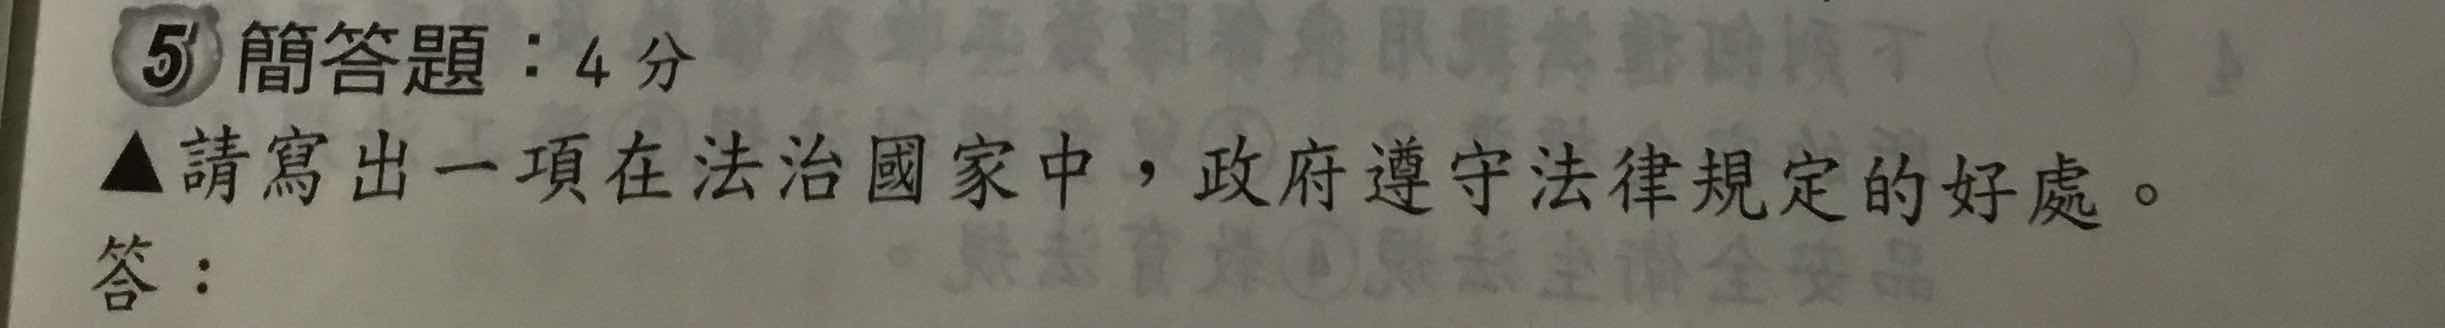 5 簡答題：4分
▲請寫出一項在法治國家中，政府遵守法律規定的好處。
答：